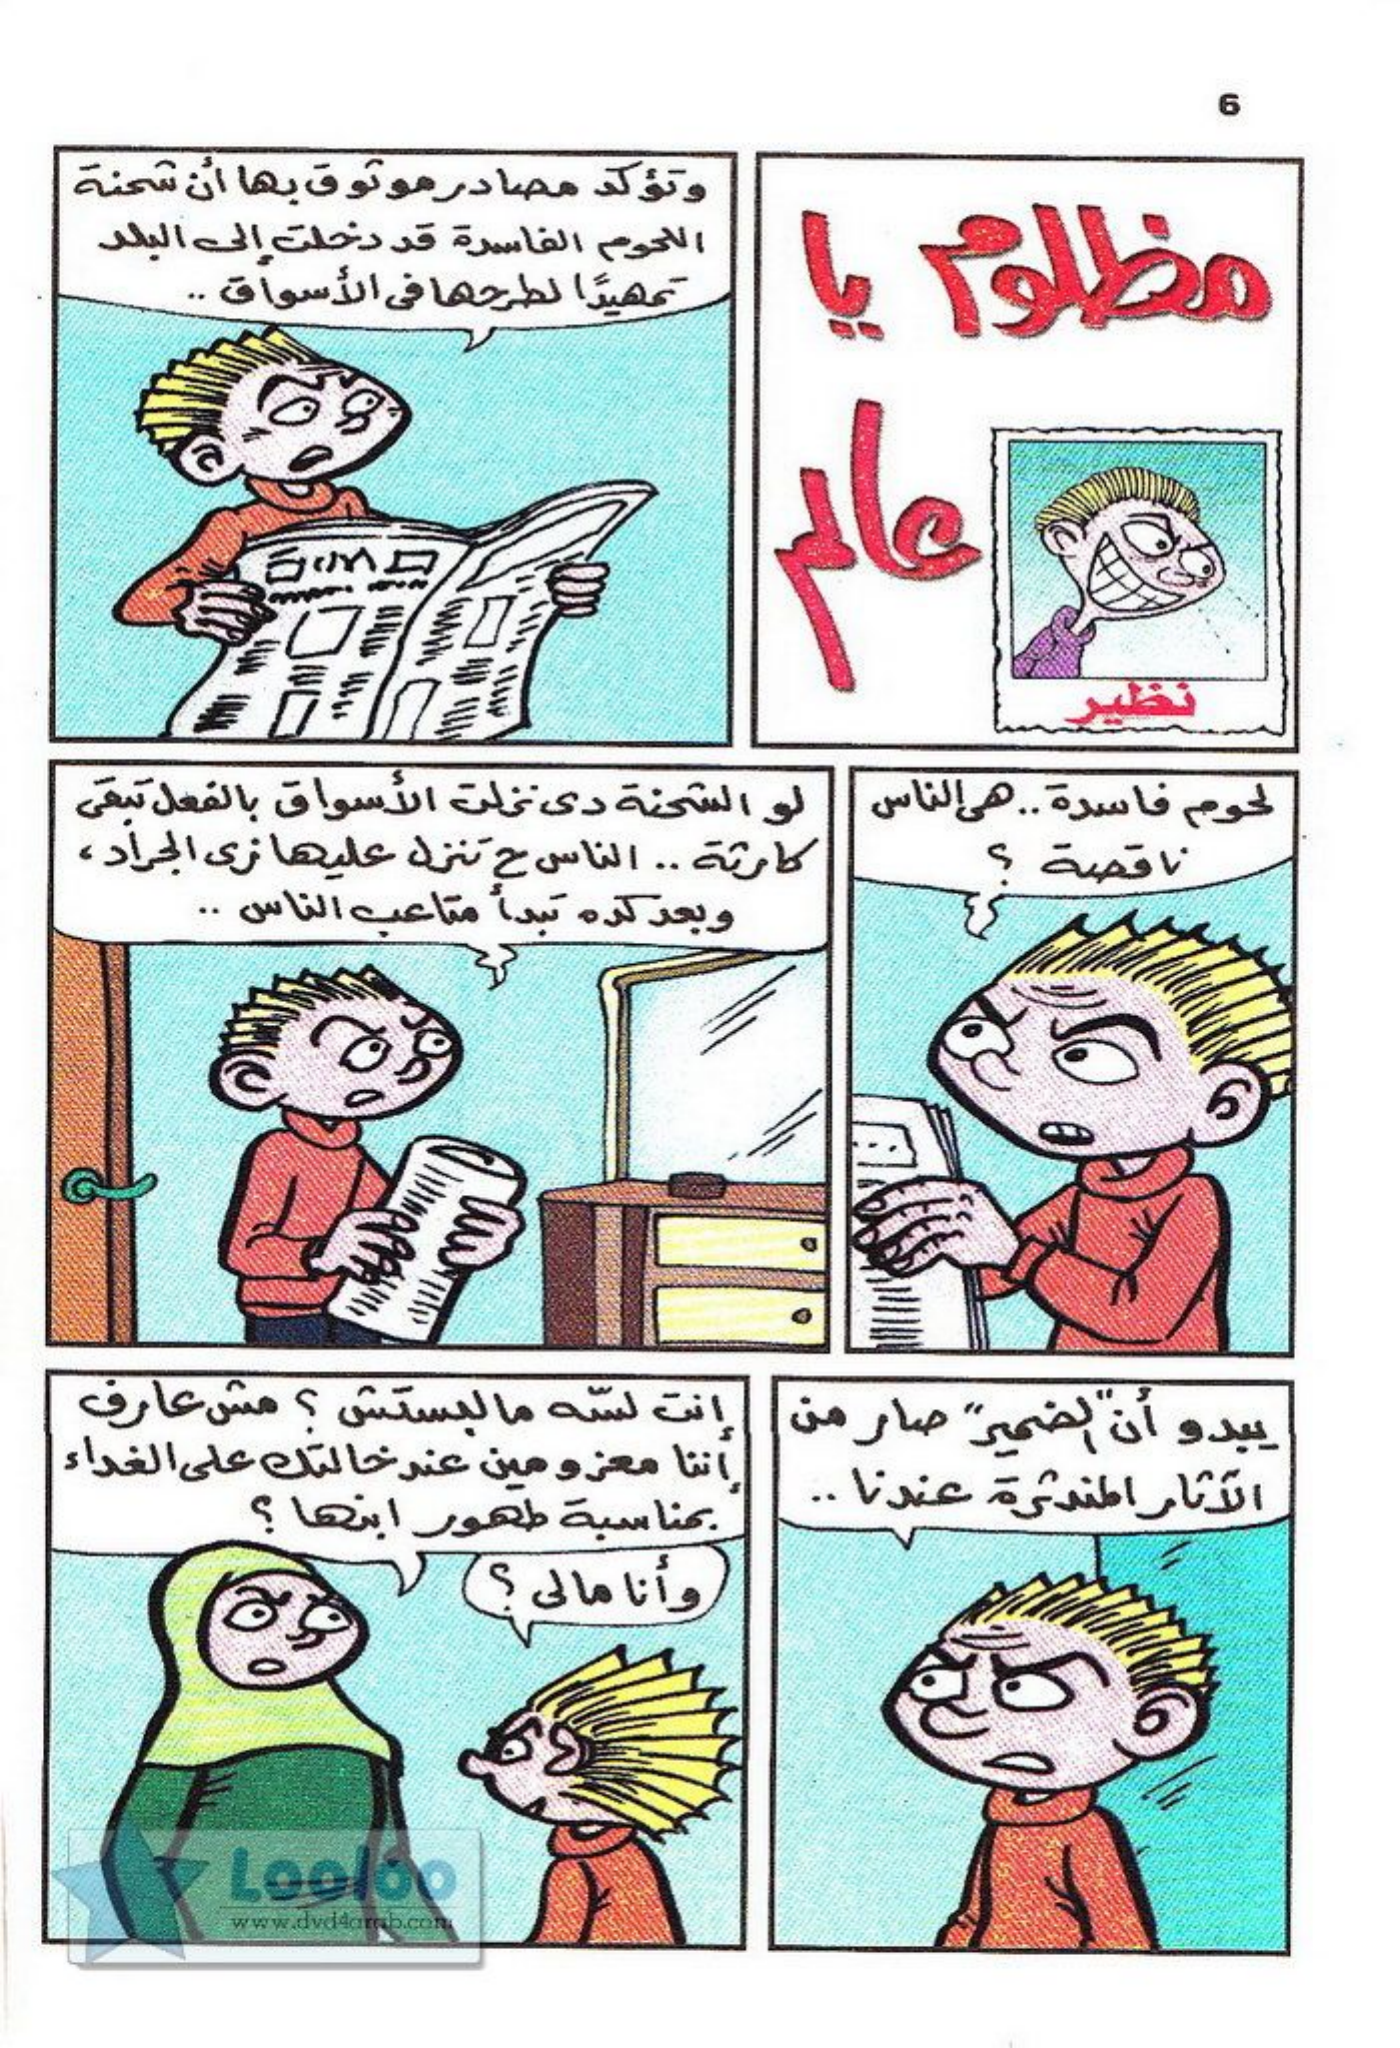 6
مظلوم يا
عالم
نظير
وتؤكد مصادر موثوق بها أن شحنة
اللحوم الفاسدة قد دخلت إلى البلد
تمهيدًا لطرحها فى الأسواق ..
لحوم فاسدة .. هى الناس
ناقصة ؟
لو الشحنة دى نزلت الأسواق بالفعل تبقى
كارثة .. الناس ح تنزل عليها زى الجراد ،
وبعد كده تبدأ متاعب الناس ..
يبدو أن "الضمير" صار من
الآثار المندثرة عندنا ..
إنت لسّه مالبستش ؟ مش عارف
إننا معزومين عند خالتك على الغداء
بمناسبة طهور ابنها ؟
وأنا مالى ؟
Looloo
www.dvd4arab.com